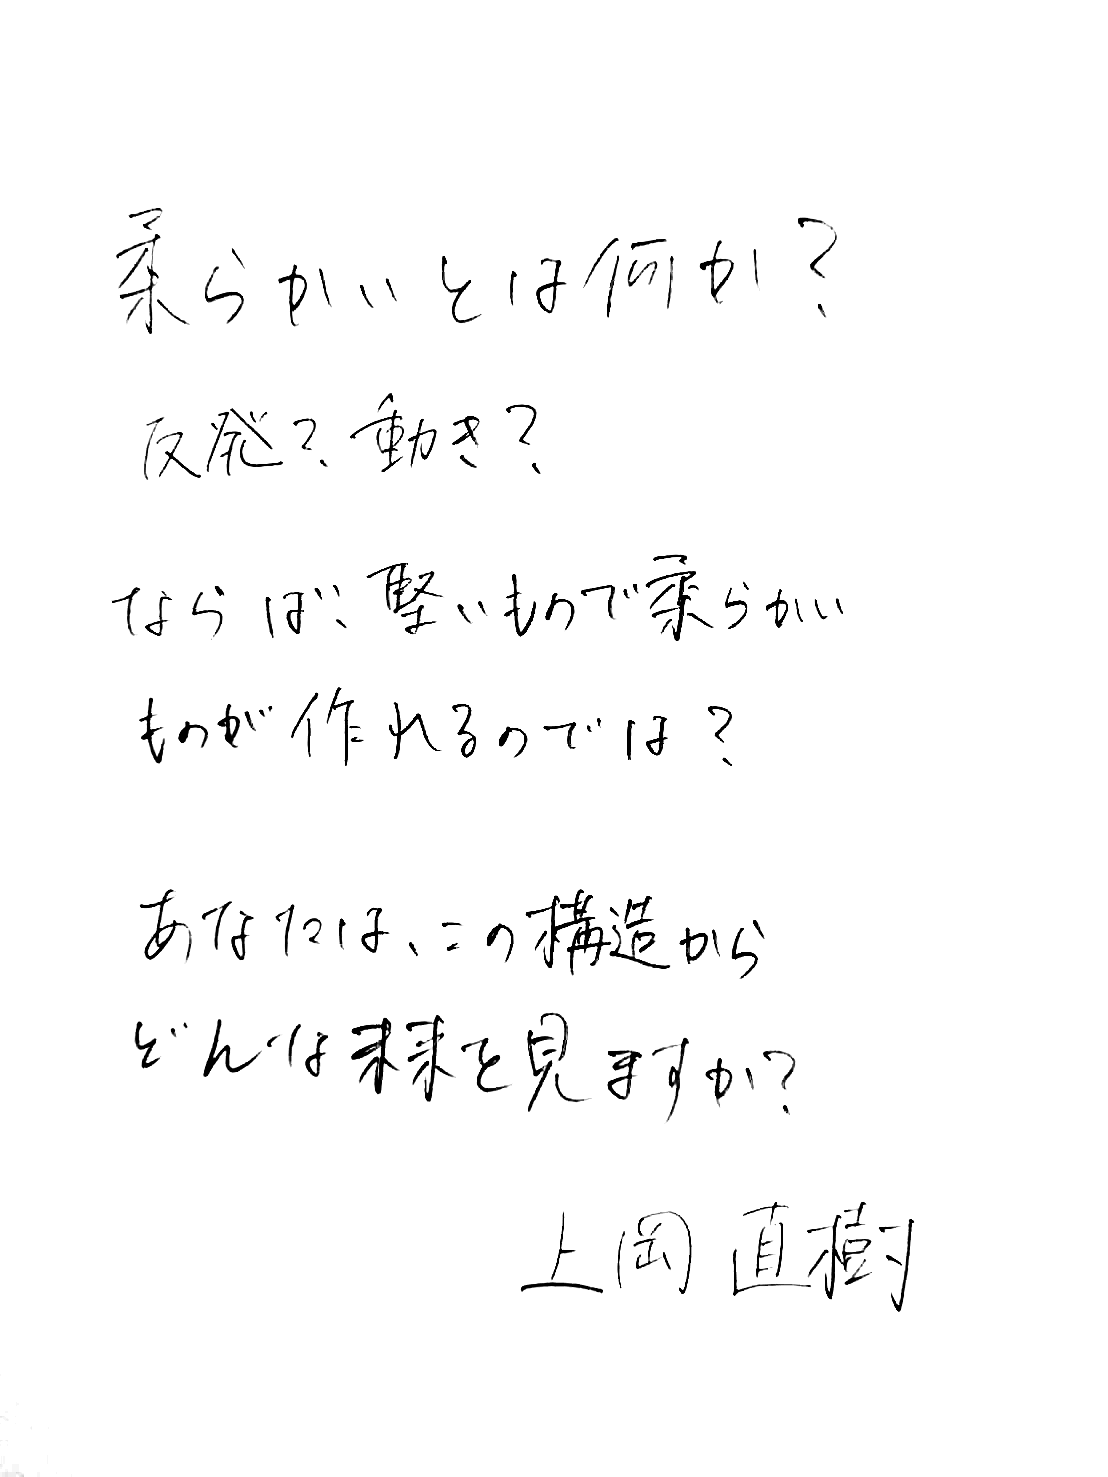 柔らかいとは何か?
反発?動き?
ならば、堅いもので柔らかい
ものが作れるのでは?
あなたは、この構造から
どんな未来を見ますか?
上岡 直樹